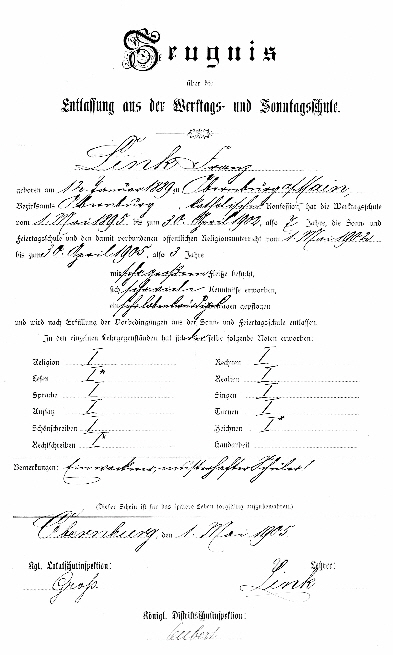 Zeugnis
über die
Entlassung aus der Werktags- und Sonntagsschule.
Link Franz
geboren am 12. Januar 1889 zu Obernburg a/Main,
Bezirksamts Obernburg katholischer Konfession, hat die Werktagsschule
vom 1. Mai 1895 bis zum 30. April 1902, also 7 Jahre, die Sonn- und
Feiertagsschule und den damit verbundenen öffentlichen Religionsunterricht vom 1. Mai 1902
bis zum 30. April 1905, also 3 Jahre
mit sehr großem Fleiße besucht,
sich sehr viele Kenntnisse erworben,
ein sehr lobenswürdiges Betragen gepflogen
und wird nach Erfüllung der Vorbedingungen aus der Sonn- und Feiertagsschule entlassen.
In den einzelnen Lehrgegenständen hat sich derselbe folgende Noten erworben:
Religion I Rechnen I
Lesen I* Realien I
Sprache I Singen I
Aufsatz I Turnen I
Schönschreiben I Zeichnen I*
Rechtschreiben I* Handarbeit
Bemerkungen: Ein wackerer, musterhafter Schüler!
(Dieser Schein ist für das spätere Leben sorgfältig aufzubewahren.)
Obernburg, den 1. Mai 1905
Kgl. Lokalschulinspektion: Lehrer:
Groß. Link
Königl. Distriktsschulinspektion: